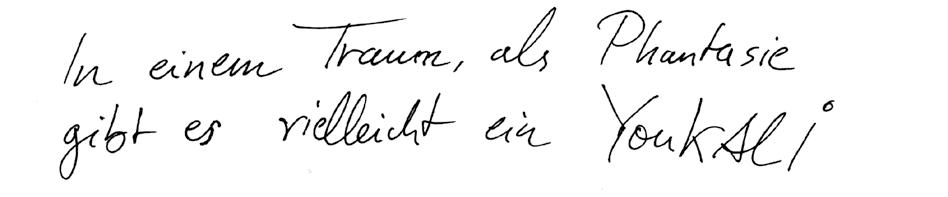 In einem Traum, als Phantasie
gibt es vielleicht ein YoukALi